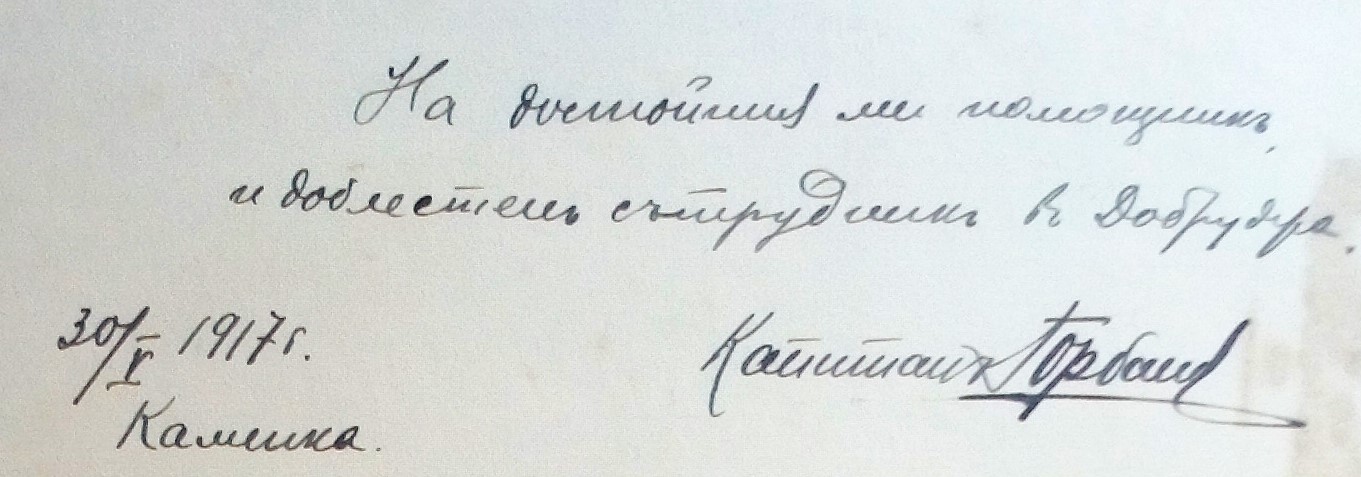 На достойния ми помощникъ,
и доблестенъ сътрудникъ въ Добруджа.
30/V 1917 г.
Каменка.
Капитанъ